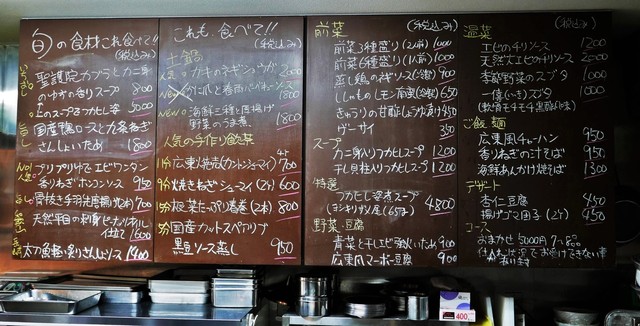 旬の食材これ食べて!!
(税込み)
聖護院カブラとカニ身
のゆかの香りスープ 800
上のスープのフカヒレ姿 5000
国産鴨ロースと九条ねぎ
さんしょいため 1800
No1
人気
プリプリゆでエビワンタン
香りねぎポン酢ソース 950
骨抜き手羽先唐揚げ(2本) 700
天然平目の刺身ピーナッツオイル
仕立て 1600
太刀魚軽い炙りさんしょうソース 1400
これも、食べて!!
(税込み)
土鍋
人気 カキのネギショウガ 2000
1800
NEW 海鮮三種と厚揚げ
野菜のうま煮 1800
人気の手作り飲茶
広東小焼売(カントンシューマイ)4ケ 700
焼きねぎシューマイ(2ケ) 600
根菜たっぷり春巻(2本) 800
国産カットスペアリブ
黒豆ソース蒸し 950
前菜 (税込み)
前菜3種盛り(2人前) 1000
前菜6種盛り(1人前) 1000
蒸し鶏のネギソース(冷製) 900
ししゃものレモン南蛮(冷製) 650
きゅうりの甘酢しょうゆ漬け 450
ザーサイ 350
スープ
カニ身入りフカヒレスープ 1200
干し貝柱入りフカヒレスープ 1200
特選
フカヒレ姿煮スープ
(ヨシキリザメ(65g)) 4800
野菜・豆腐
青菜と干しエビ強火いため 900
広東風マーボー豆腐 900
温菜 (税込み)
エビのチリソース 1200
天然大エビのチリソース 2000
季節野菜のスブタ 1000
一億(いきな)スブタ 1000
ご飯・麺
広東風チャーハン 950
香りねぎの汁そば 950
海鮮あんかけ焼そば 1300
デザート
杏仁豆腐 450
揚げゴマ団子(2ケ) 450
コース
おまかせ 5000円 7~8品
仕入れ状況でお受けできない事
あります
400